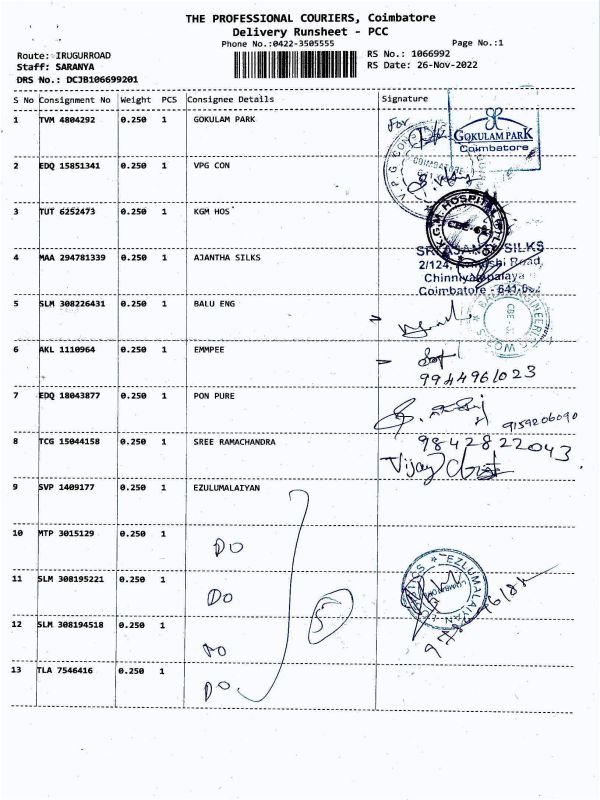 THE PROFESSIONAL COURIERS, Coimbatore
Delivery Runsheet - PCC
Phone No.:0422-3505555 Page No.:1
Route: IRUGURROAD RS No.: 1066992
Staff: SARANYA RS Date: 26-Nov-2022
DRS No.: DCJB106699201
S No Consignment No Weight PCS Consignee Details Signature
1 TVM 4804292 0.250 1 GOKULAM PARK
For
GOKULAM PARK
Coimbatore
2 EDQ 15851341 0.250 1 VPG CON
3 TUT 6252473 0.250 1 KGM HOS
K.G.M. HOSPITAL
4 MAA 294781339 0.250 1 AJANTHA SILKS
SILKS
2/124, Road,
Coimbatore - 641
5 SLM 308226431 0.250 1 BALU ENG
6 AKL 1110964 0.250 1 EMMPEE
9944961023
7 EDQ 18043877 0.250 1 PON PURE
9159206090
8 TCG 15044158 0.250 1 SREE RAMACHANDRA
9842822043
Vijay
9 SVP 1409177 0.250 1 EZULUMALAIYAN
10 MTP 3015129 0.250 1 DO
11 SLM 308195221 0.250 1 DO
EZLUMALAIYAN
5
12 SLM 308194518 0.250 1 DO
13 TLA 7546416 0.250 1 DO